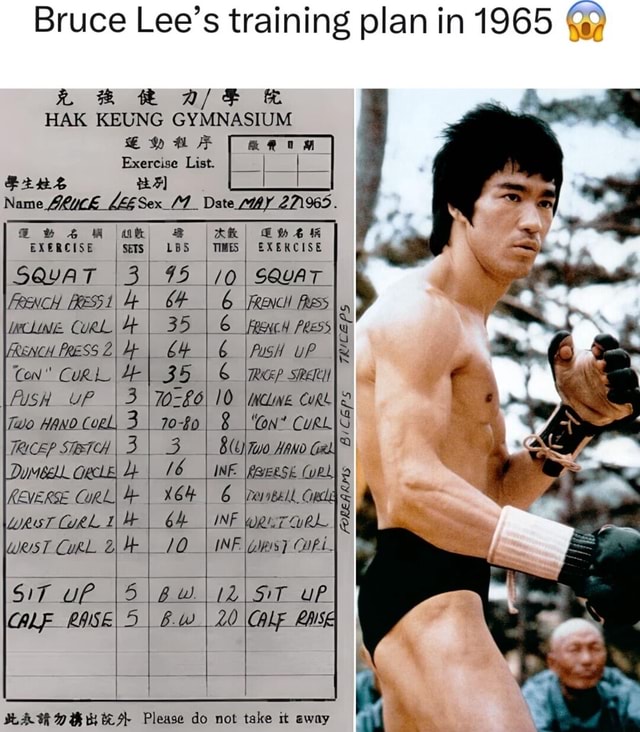 Bruce Lee's training plan in 1965 😱
克強健力/學院
HAK KEUNG GYMNASIUM
運動程序
Exercise List.
學生姓名 性別
Name BRUCE LEE Sex M Date MAY 27 1965.
運動名稱 組數 磅 次數 運動名稱
EXERCISE SETS LBS TIMES EXERCISE
SQUAT 3 95 10 SQUAT
FRENCH PRESS 1 4 64 6 FRENCH PRESS
INCLINE CURL 4 35 6 FRENCH PRESS
FRENCH PRESS 2 4 64 6 PUSH UP
"CON" CURL 4 35 6 TRICEP STRETCH
PUSH UP 3 70-80 10 INCLINE CURL
TWO HAND CURL 3 70-80 8 "CON" CURL
TRICEP STRETCH 3 3 8(6) TWO HAND CURL
DUMBELL CIRCLE 4 16 INF. REVERSE CURL
REVERSE CURL 4 X64 6 DUMBELL CIRCLE
WRIST CURL 1 4 64 INF WRIST CURL
WRIST CURL 2 4 10 INF. WRIST CURL
SIT UP 5 B.W. 12 SIT UP
CALF RAISE 5 B.W 20 CALF RAISE
TRICEPS
BICEPS
FOREARMS
此表請勿携出院外 Please do not take it away